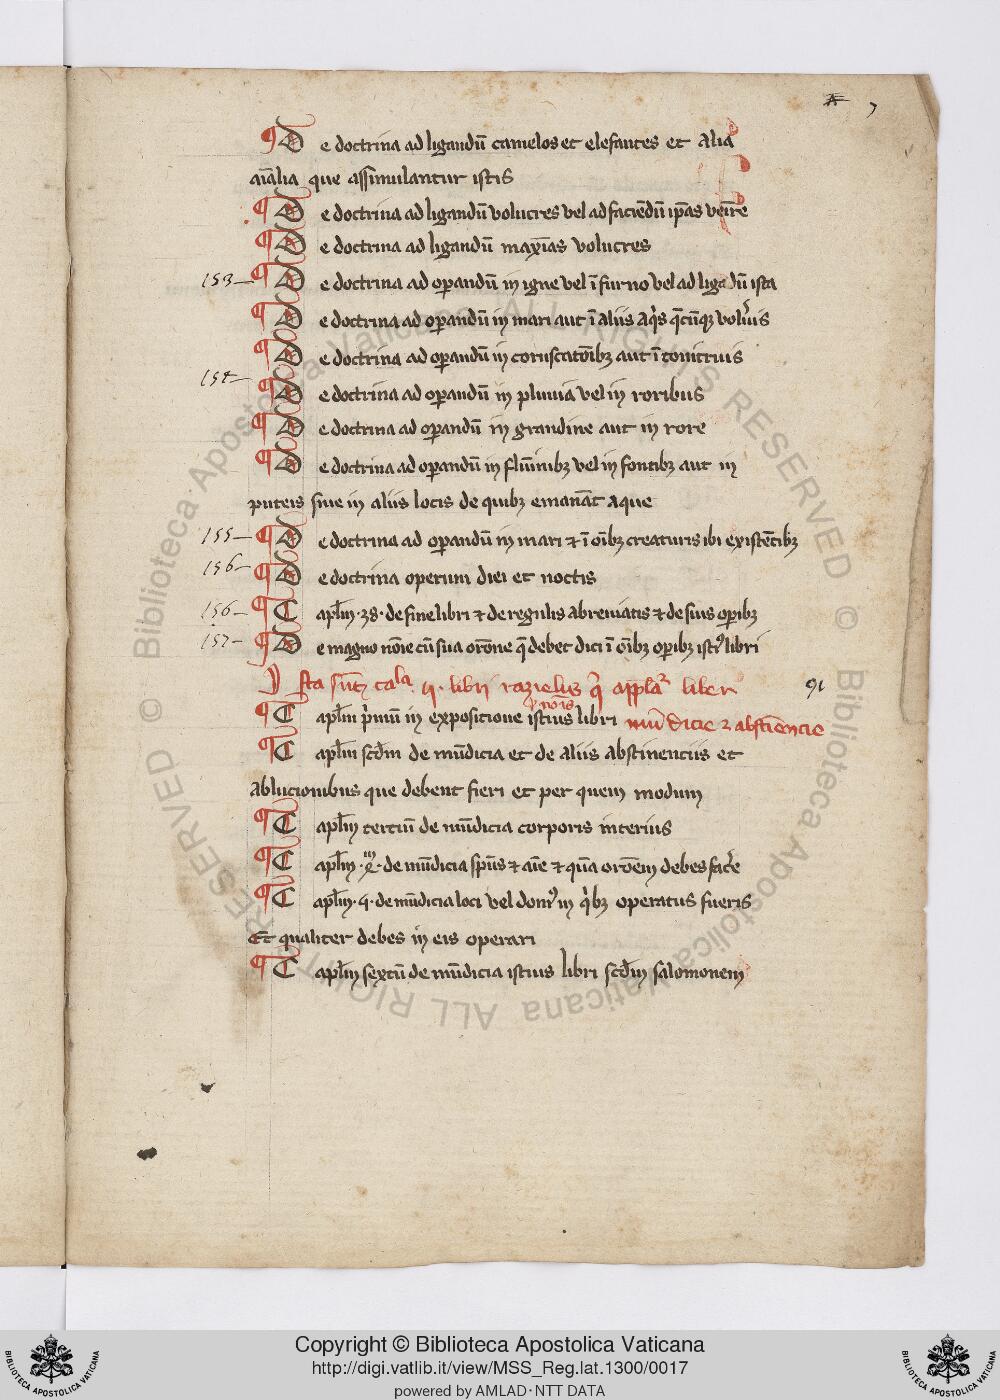 A 7
¶ De doctrina ad ligandū camelos et elefantes et alia
aīalia que assimulantur istis
¶ De doctrina ad ligandū volucres vel ad faciēdū ip̄as venīre
¶ De doctrina ad ligandū maxīas volucres
153— ¶ De doctrina ad op̄andū in igne vel ī furno vel ad ligādū ista
¶ De doctrina ad op̄andū in mari aut ī aliis aq̄s q̄cūqꝫ volūis
¶ De doctrina ad op̄andū in coruscatōibꝫ aut ī tonitruis
154— ¶ De doctrina ad op̄andū in pluuia vel in roribus
¶ De doctrina ad op̄andū in grandine aut in rore
¶ De doctrina ad op̄andū in flūinibꝫ vel in fontibꝫ aut in
puteis siue in aliis locis de quibꝫ emanāt aque
155— ¶ De doctrina ad op̄andū in mari ⁊ ī oībꝫ creaturis ibi existētibꝫ
156— ¶ De doctrina operum diei et noctis
156— ¶ Capl̄m .38. de fine libri ⁊ de regulis abreuiatis ⁊ de suis op̄ibꝫ
157— ¶ De magno noīe cū sua orōne q̄ debet dici ī oībꝫ op̄ibꝫ istꝰ libri
Ista sūt cala ij. libri razielus q̄ appl̄ar liber 91
¶ Capl̄m p̄mū in expositione istius libri mūdicie ⁊ abstinēncie
¶ Capl̄m scd̄m de mūdicia et de aliis abstinenciis et
ablucionibus que debent fieri et per quem modum
¶ Capl̄m terciū de mūdicia corporis interius
¶ Capl̄m .4. de mūdicia sp̄us ⁊ aīe ⁊ q̄ua orōem debes fac̄e
¶ Capl̄m .5. de mūdicia loci vel domꝰ in q̄bꝫ operatus fueris
Et qualiter debes in eis operari
¶ Capl̄m sextū de mūdicia istius libri scd̄m salomonem
© Biblioteca Apostolica Vaticana ALL RIGHTS RESERVED © Biblioteca Apostolica Vaticana ALL RIGHTS RESERVED
Copyright © Biblioteca Apostolica Vaticana
http://digi.vatlib.it/view/MSS_Reg.lat.1300/0017
powered by AMLAD·NTT DATA
BIBLIOTECA APOSTOLICA VATICANA
BIBLIOTECA APOSTOLICA VATICANA